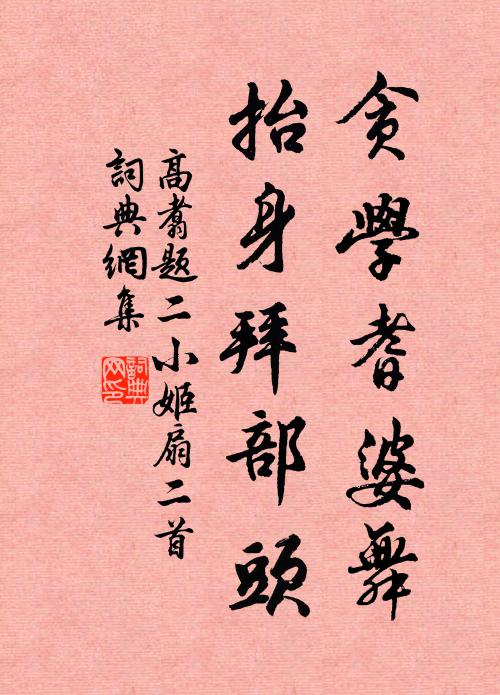 貪學耆婆舞
抬身拜部頭
高翥題二小姬扇二首
詞典網集
詞典網印